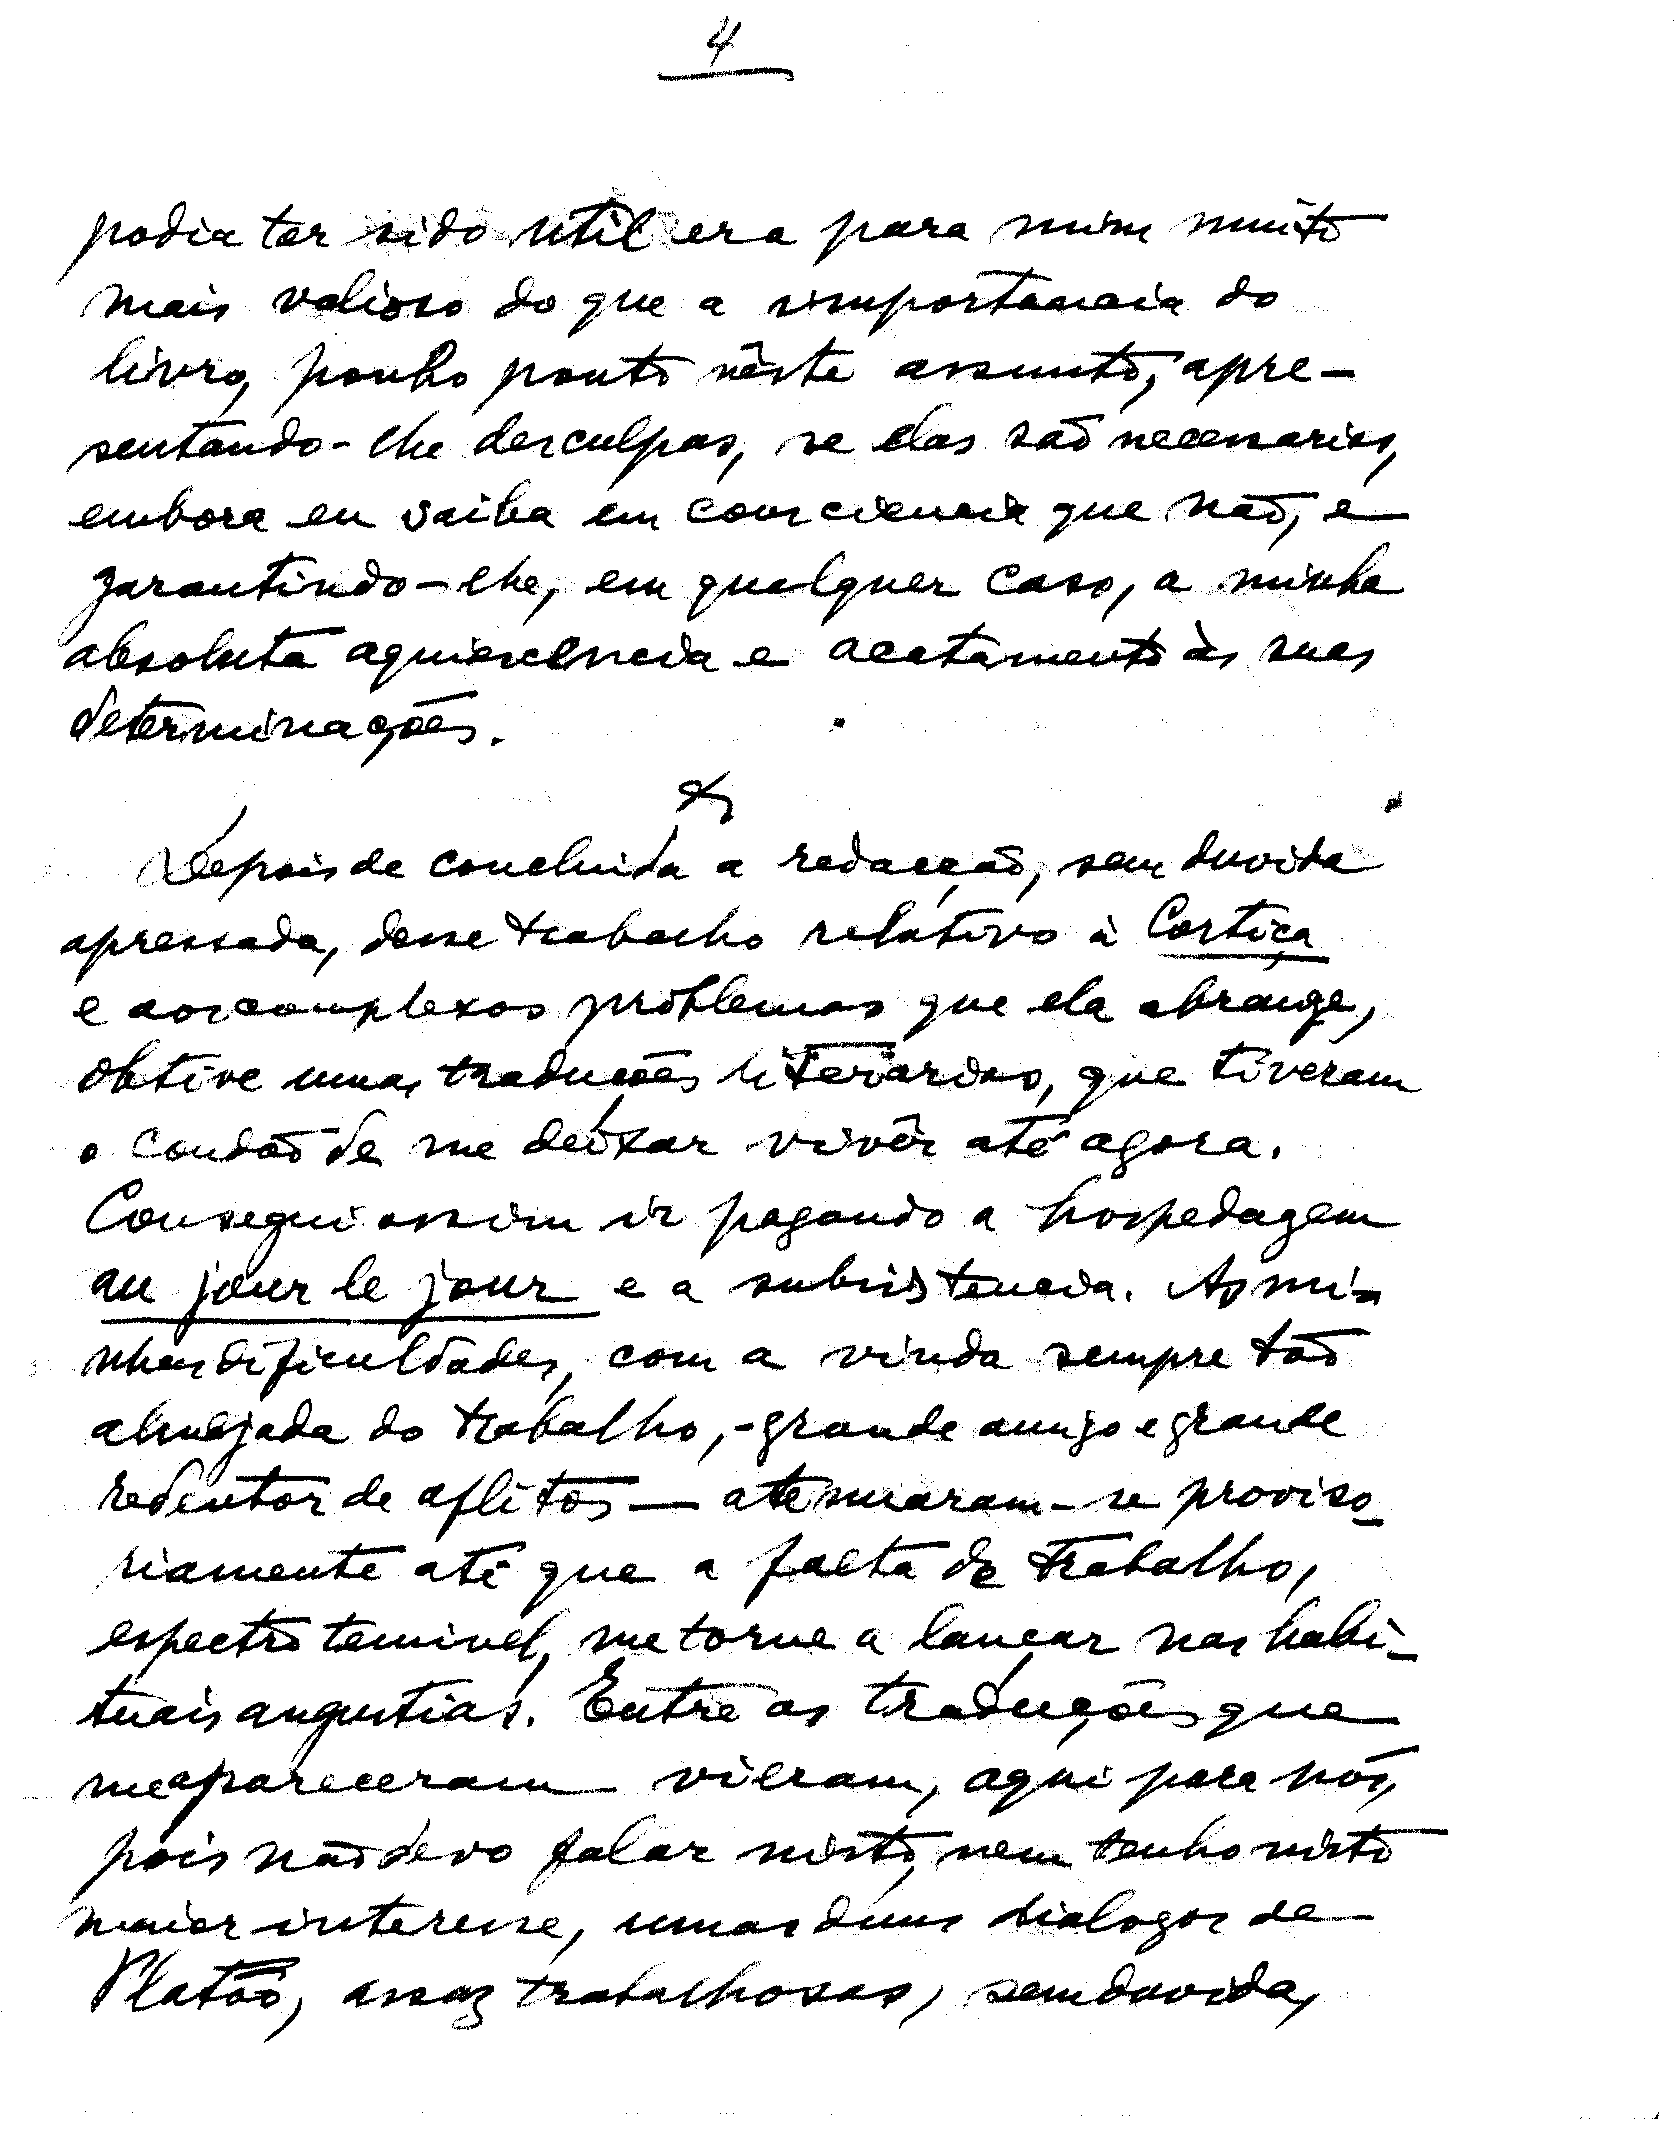 4
podia ter sido util era para mim muito
mais valioso do que a importancia do
livro, ponho ponto nêste assunto, apre-
sentando-lhe desculpas, se elas são necessarias,
embora eu saiba em consciencia que não, e
garantindo-lhe, em qualquer caso, a minha
absoluta aquiescencia e acatamento às suas
determinações.
Depois de concluida a redacção, sem duvida
apressada, desse trabalho relativo à Cortiça
e aos complexos problemas que ela abrange,
obtive umas traduções literarias, que tiveram
o condão de me deixar vivêr até agora.
Consegui assim ir pagando a hospedagem
au jour le jour e a subsistencia. As mi-
nhas dificuldades, com a vinda sempre tão
almejada do trabalho, - grande amigo e grande
redentor de aflitos — atenuaram-se proviso-
riamente até que a falta de trabalho,
espectro temivel, me torne a lançar nas habi-
tuais angustias. Entre as traduções que
me apareceram vieram, aqui para nós,
pois não devo falar nisto, nem tenho nisto
maior interesse, umas duns dialogos de
Platão, assaz trabalhosas, sem duvida,